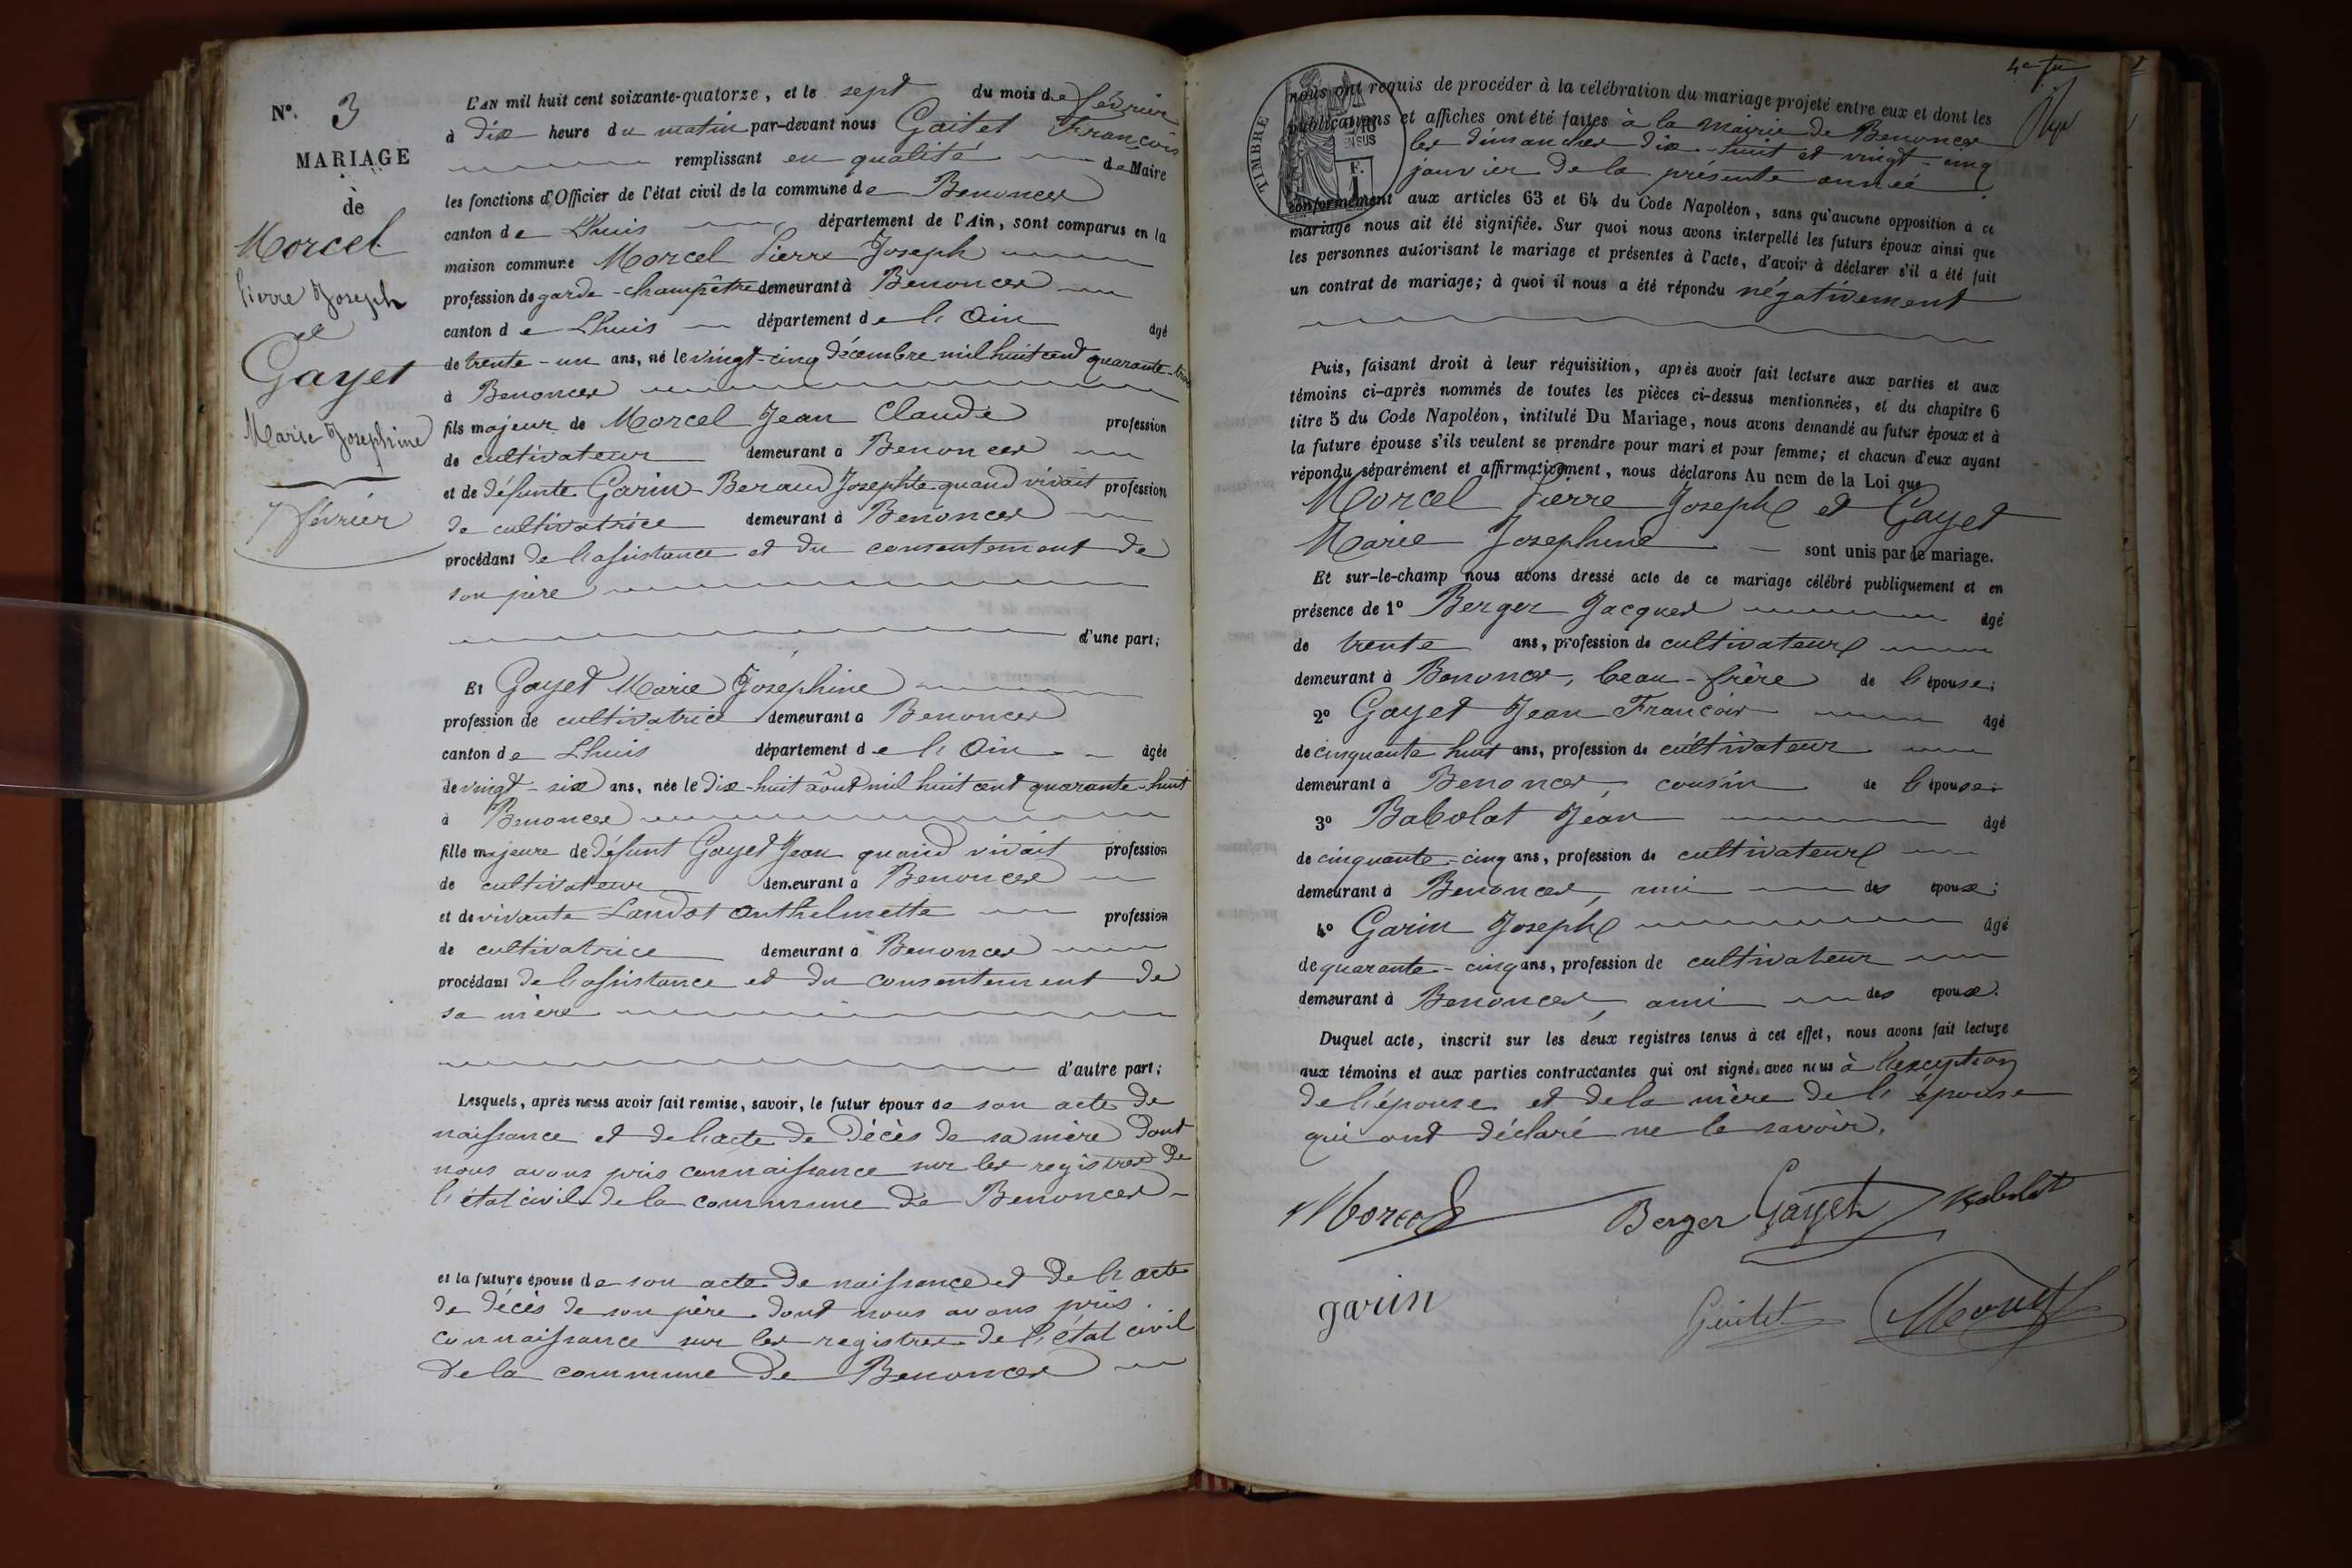 N°. 3
MARIAGE
de
Morcel
Pierre Joseph
et
Gayet
Marie Josephine
7 février
L'AN mil huit cent soixante-quatorze, et le sept du mois de février
à dix heure du matin par-devant nous Gaitet François
remplissant en qualité de Maire
les fonctions d'Officier de l'état civil de la commune de Benonces
canton de Lhuis département de l'Ain, sont comparus en la
maison commune Morcel Pierre Joseph
profession de garde-champêtre demeurant à Benonces
canton de Lhuis département de l'Ain âgé
de trente-un ans, né le vingt-cinq décembre mil huit cent quarante-trois
à Benonces
fils majeur de Morcel Jean Claude profession
de cultivateur demeurant à Benonces
et de défunte Garin-Beraud Josephte quand vivait profession
de cultivatrice demeurant à Benonces
procédant de l'assistance et du consentement de
son père
d'une part;
Et Gayet Marie Josephine
profession de cultivatrice demeurant à Benonces
canton de Lhuis département de l'Ain âgée
de vingt-six ans, née le dix-huit août mil huit cent quarante-huit
à Benonces
fille majeure de défunt Gayet Jean quand vivait profession
de cultivateur demeurant à Benonces
et de vivante Landot Anthelmette profession
de cultivatrice demeurant à Benonces
procédant de l'assistance et du consentement de
sa mère
d'autre part;
Lesquels, après nous avoir fait remise, savoir, le futur époux de son acte de
naissance et de l'acte de décès de sa mère dont
nous avons pris connaissance sur les registres de
l'état civil de la commune de Benonces
et la future épouse de son acte de naissance et de l'acte
de décès de son père dont nous avons pris
connaissance sur les registres de l'état civil
de la commune de Benonces
TIMBRE
EN SUS
nous ont requis de procéder à la célébration du mariage projeté entre eux et dont les
publications et affiches ont été faites à la Mairie de Benonces
les dimanches dix-huit et vingt-cinq
janvier de la présente année
conformément aux articles 63 et 64 du Code Napoléon, sans qu'aucune opposition à ce
mariage nous ait été signifiée. Sur quoi nous avons interpellé les futurs époux ainsi que
les personnes autorisant le mariage et présentes à l'acte, d'avoir à déclarer s'il a été fait
un contrat de mariage; à quoi il nous a été répondu négativement
Puis, faisant droit à leur réquisition, après avoir fait lecture aux parties et aux
témoins ci-après nommés de toutes les pièces ci-dessus mentionnées, et du chapitre 6
titre 5 du Code Napoléon, intitulé Du Mariage, nous avons demandé au futur époux et à
la future épouse s'ils veulent se prendre pour mari et pour femme; et chacun d'eux ayant
répondu séparément et affirmativement, nous déclarons Au nom de la Loi que
Morcel Pierre Joseph et Gayet
Marie Josephine sont unis par le mariage.
Et sur-le-champ nous avons dressé acte de ce mariage célébré publiquement et en
présence de 1° Berger Jacques âgé
de trente ans, profession de cultivateur
demeurant à Benonces, beau-frère de l'épouse;
2° Gayet Jean François âgé
de cinquante huit ans, profession de cultivateur
demeurant à Benonces, cousin de l'épouse;
3° Babolat Jean âgé
de cinquante-cinq ans, profession de cultivateur
demeurant à Benonces, ami des époux;
4° Garin Joseph âgé
de quarante-cinq ans, profession de cultivateur
demeurant à Benonces, ami des époux.
Duquel acte, inscrit sur les deux registres tenus à cet effet, nous avons fait lecture
aux témoins et aux parties contractantes qui ont signé avec nous à l'exception
de l'épouse et de la mère de l'épouse
qui ont déclaré ne le savoir.
Morcel Berger Gayet Babolat
garin